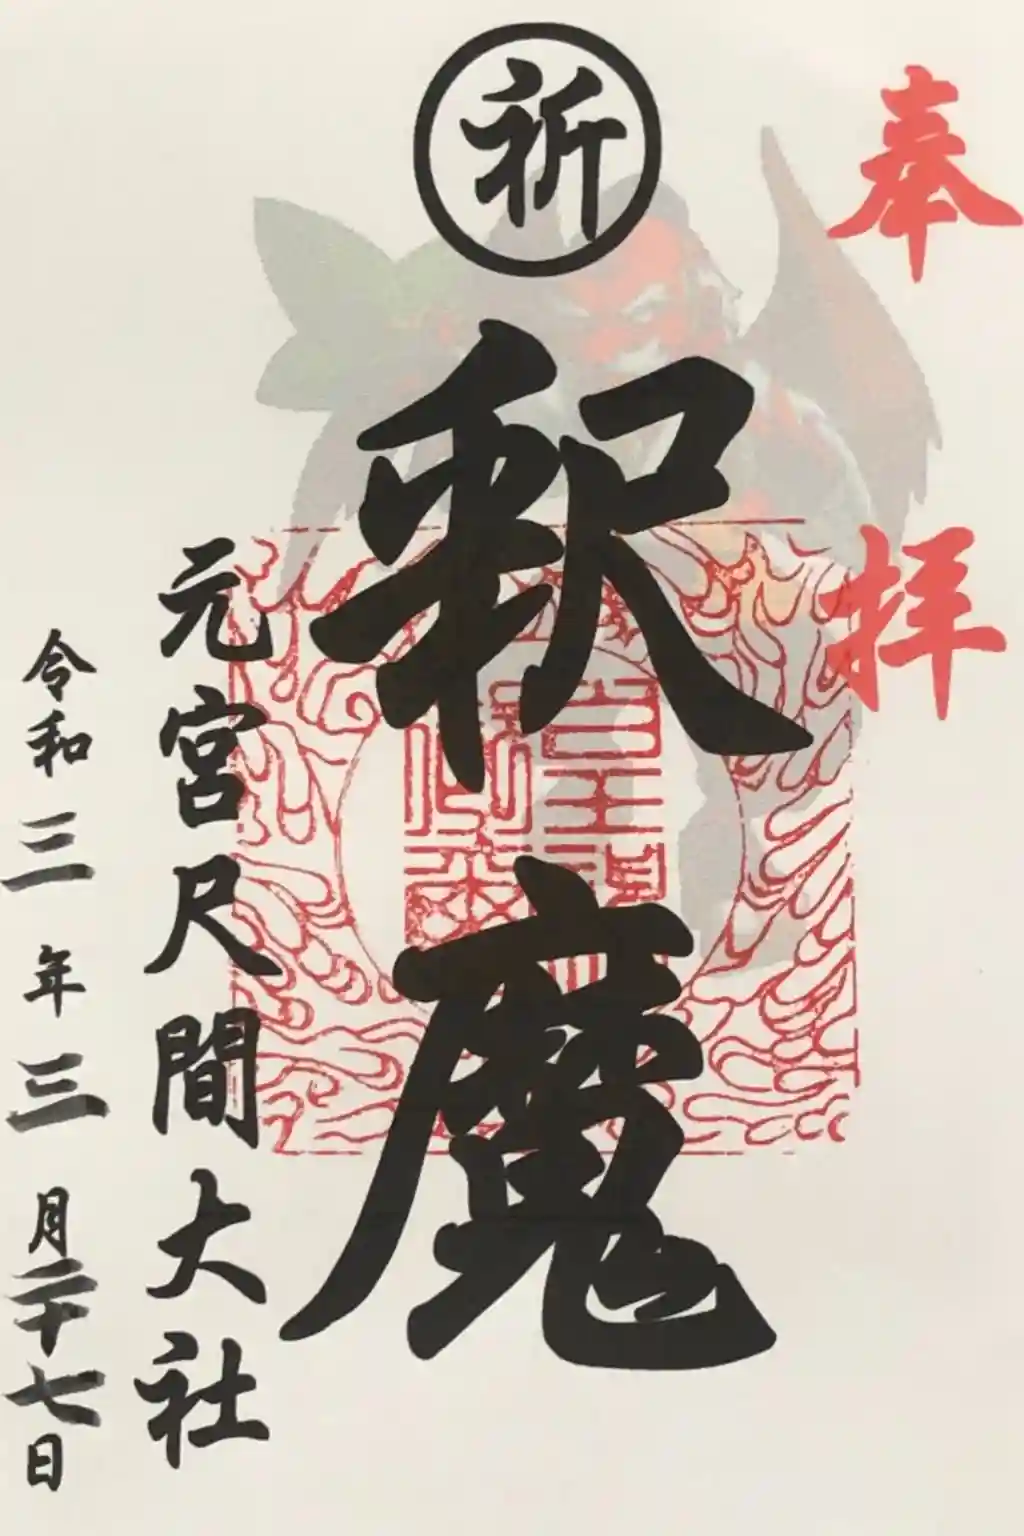 奉拝
祈
釈魔
元宮尺間大社
令和三年三月二十七日